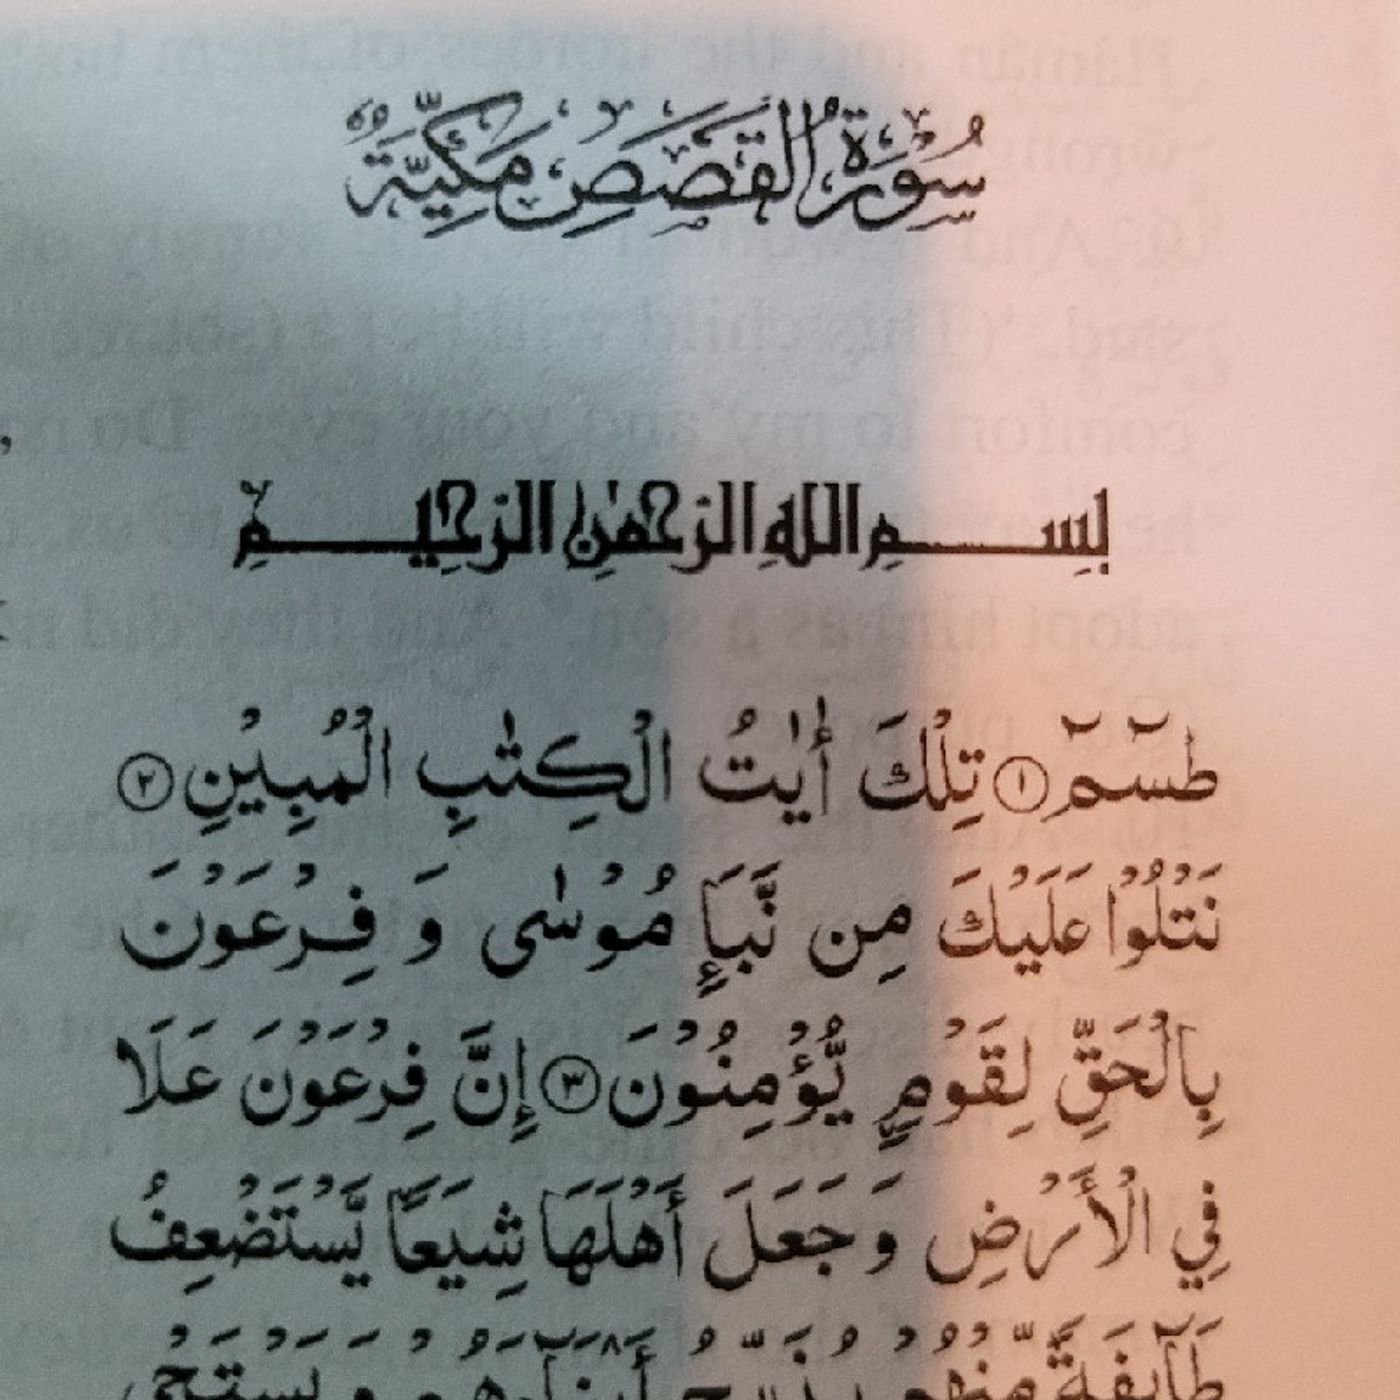 سُوْرَةُ الْقَصَصِ مَكِّيَّةٌ
بِسْمِ اللهِ الرَّحْمٰنِ الرَّحِيْمِ
طٰسٓمّٓ ① تِلْكَ أٰيٰتُ الْكِتٰبِ الْمُبِيْنِ ②
نَتْلُوْا عَلَيْكَ مِن نَّبَإِ مُوْسٰى وَ فِرْعَوْنَ
بِالْحَقِّ لِقَوْمٍ يُّؤْمِنُوْنَ ③ إِنَّ فِرْعَوْنَ عَلَا
فِي الْأَرْضِ وَ جَعَلَ أَهْلَهَا شِيَعًا يَّسْتَضْعِفُ
طَآئِفَةً مِّنْهُمْ يُذَبِّحُ أَبْنَآءَهُمْ وَ يَسْتَحْيٖ